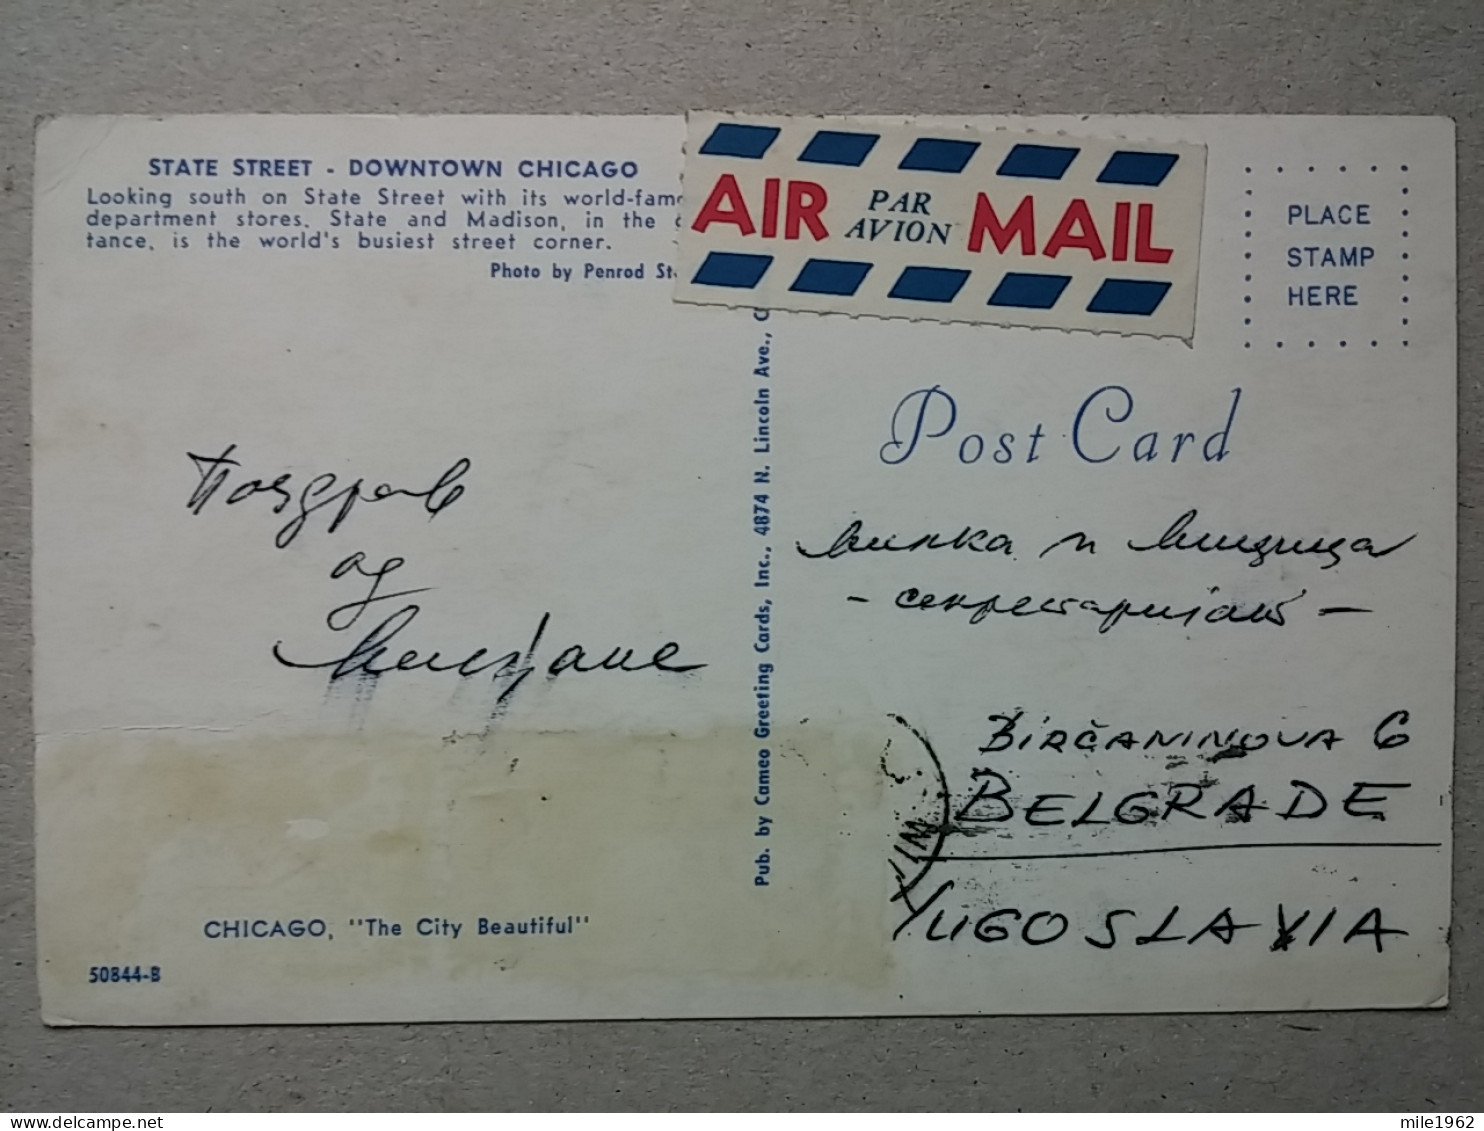 STATE STREET - DOWNTOWN CHICAGO
Looking south on State Street with its world-fam
department stores. State and Madison, in the
tance, is the world's busiest street corner.
Photo by Penrod St
AIR PAR AVION MAIL
PLACE
STAMP
HERE
Post Card
Поздрав
од
Pub. by Cameo Greeting Cards, Inc., 4874 N. Lincoln Ave., C
и
- секретаријат -
BIRČANINOVA 6
BELGRADE
YUGOSLAVIA
CHICAGO, "The City Beautiful"
50844-B
mile1962